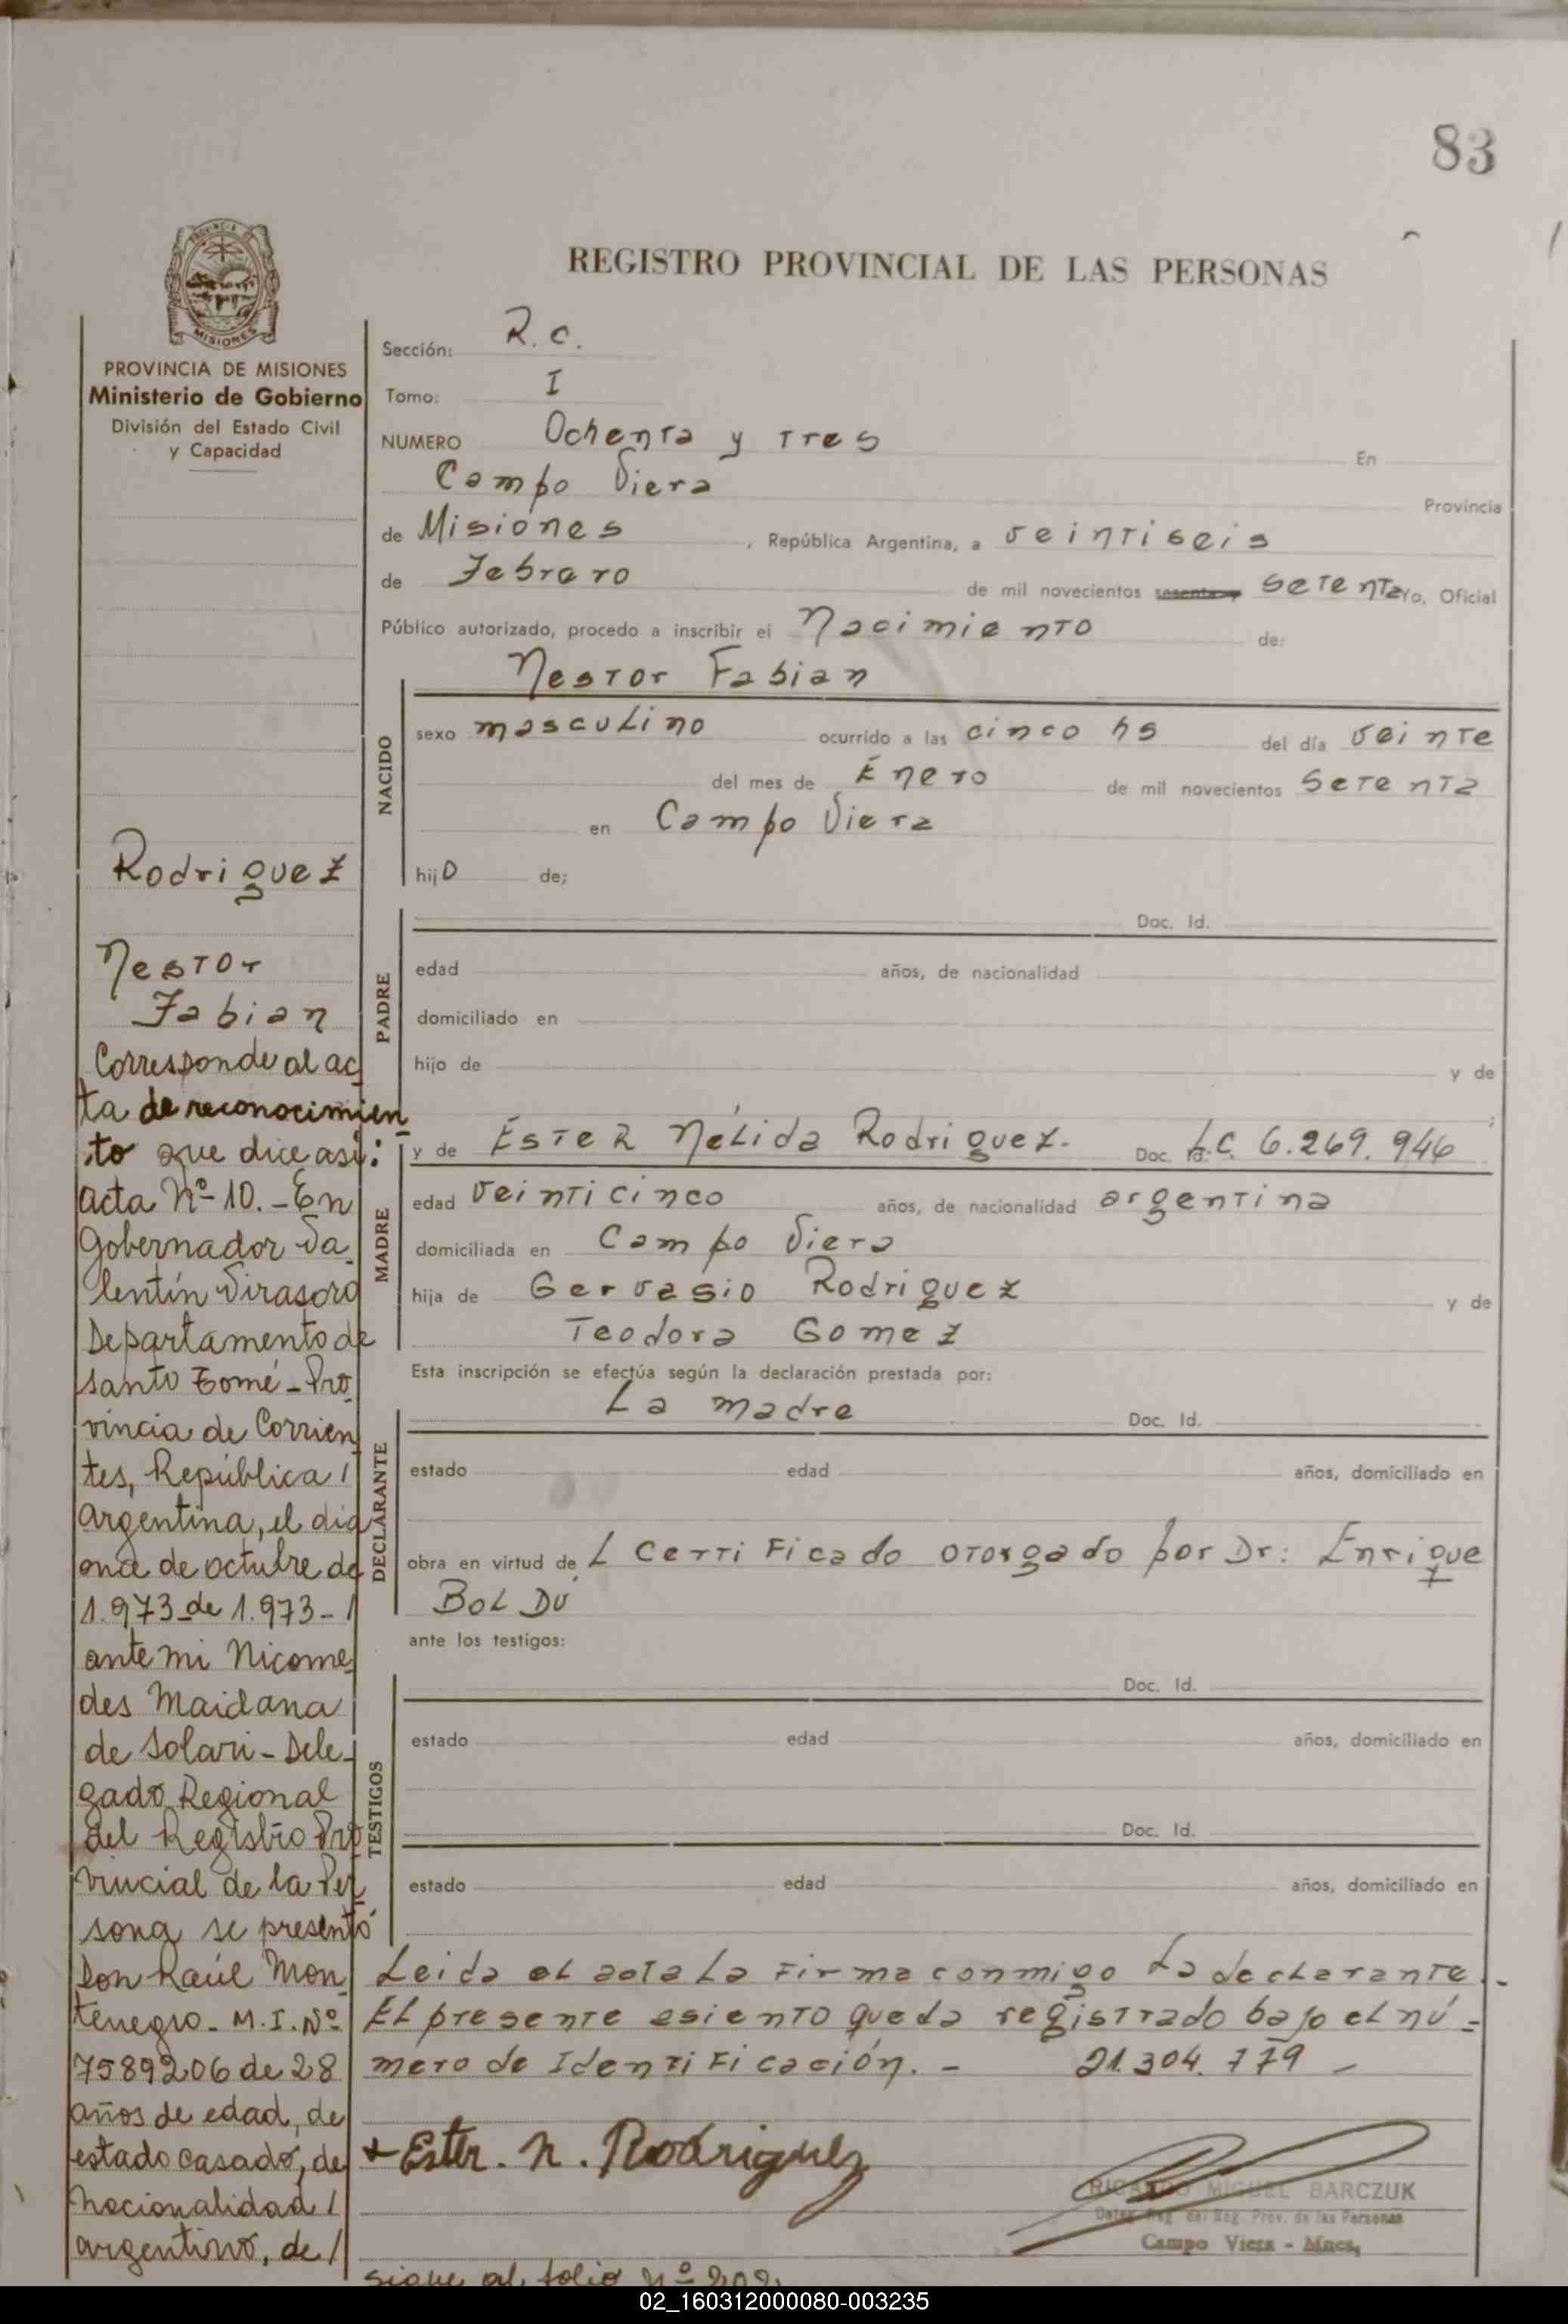 83
REGISTRO PROVINCIAL DE LAS PERSONAS
PROVINCIA DE MISIONES
Ministerio de Gobierno
División del Estado Civil
y Capacidad
Rodriguez
Nestor
Fabian
Corresponde al ac
ta de reconocimien
to que dice así:
acta Nº 10. - En
Gobernador Va
lentín Virasoro
Departamento de
Santo Tomé - Pro
vincia de Corrien
tes, República /
argentina, el dia
once de octubre de
1.973 de 1.973 - /
ante mi Nicome
des Maidana
de Solari - Dele-
gado Regional
del Registro Pro
vincial de la Per
sona se presentó
Don Raúl Mon
tenegro - M.I. Nº
7589206 de 28
años de edad, de
estado casado, de
nacionalidad /
argentino, de /
Sección: R. C.
Tomo: I
NUMERO Ochenta y Tres En
Campo Viera Provincia
de Misiones , República Argentina, a veintiseis
de Febrero de mil novecientos sesenta y setenta Yo, Oficial
Público autorizado, procedo a inscribir el Nacimiento de:
Nestor Fabian
NACIDO
sexo masculino ocurrido a las cinco hs del día veinte
del mes de Enero de mil novecientos Setenta
en Campo Viera
hijo de;
PADRE
Doc. Id.
edad años, de nacionalidad
domiciliado en
hijo de y de
;
MADRE
y de Ester Nélida Rodriguez. Doc. Id. L.C. 6.269.946
edad veinticinco años, de nacionalidad argentina
domiciliada en Campo Viera
hija de Gervasio Rodriguez y de
Teodora Gomez
Esta inscripción se efectúa según la declaración prestada por:
DECLARANTE
La madre Doc. Id.
estado edad años, domiciliado en
obra en virtud de L Certificado otorgado por Dr: Enrique
Boldú
ante los testigos:
TESTIGOS
Doc. Id.
estado edad años, domiciliado en
Doc. Id.
estado edad años, domiciliado en
Leida el acta la firma conmigo la declarante.-
El presente asiento queda registrado bajo el nú-
mero de Identificación. - 21.304.779 -
Ester. N. Rodriguez
RICARDO MIGUEL BARCZUK
Deleg. Reg. del Reg. Prov. de las Personas
Campo Viera - Mnes.
sigue al folio Nº
02_160312000080-003235